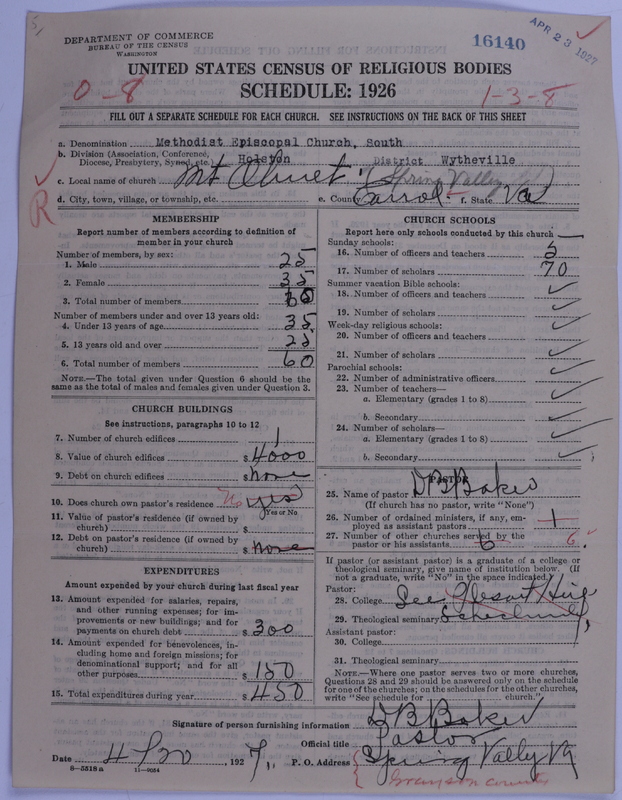 DEPARTMENT OF COMMERCE
BUREAU OF THE CENSUS
WASHINGTON
16140
APR 23 1927
UNITED STATES CENSUS OF RELIGIOUS BODIES
0-8
SCHEDULE: 1926
1-3-8
FILL OUT A SEPARATE SCHEDULE FOR EACH CHURCH. SEE INSTRUCTIONS ON THE BACK OF THIS SHEET
a. Denomination Methodist Episcopal Church, South
b. Division (Association, Conference, Diocese, Presbytery, Synod, etc.) Holston District Wytheville
c. Local name of church Mt Olivet (Spring Valley
d. City, town, village, or township, etc. e. County Carrol f. State Va
R
MEMBERSHIP
Report number of members according to definition of
member in your church
Number of members, by sex:
1. Male 25
2. Female 35
3. Total number of members 60
Number of members under and over 13 years old:
4. Under 13 years of age 35
5. 13 years old and over 25
6. Total number of members 60
NOTE.—The total given under Question 6 should be the
same as the total of males and females given under Question 3.
CHURCH BUILDINGS
See instructions, paragraphs 10 to 12
7. Number of church edifices 1
8. Value of church edifices $ 4000
9. Debt on church edifices $ none
10. Does church own pastor's residence No yes
Yes or No
11. Value of pastor's residence (if owned by
church) $
12. Debt on pastor's residence (if owned by
church) $ none
EXPENDITURES
Amount expended by your church during last fiscal year
13. Amount expended for salaries, repairs,
and other running expenses; for im-
provements or new buildings; and for
payments on church debt $ 300
14. Amount expended for benevolences, in-
cluding home and foreign missions; for
denominational support; and for all
other purposes $ 150
15. Total expenditures during year $ 450
CHURCH SCHOOLS
Report here only schools conducted by this church
Sunday schools:
16. Number of officers and teachers 5
17. Number of scholars 70
Summer vacation Bible schools:
18. Number of officers and teachers
19. Number of scholars
Week-day religious schools:
20. Number of officers and teachers
21. Number of scholars
Parochial schools:
22. Number of administrative officers
23. Number of teachers—
a. Elementary (grades 1 to 8)
b. Secondary
24. Number of scholars—
a. Elementary (grades 1 to 8)
b. Secondary
PASTOR
25. Name of pastor D B Baker
(If church has no pastor, write "None")
26. Number of ordained ministers, if any, em-
ployed as assistant pastors 1
27. Number of other churches served by the
pastor or his assistants 6 6
If pastor (or assistant pastor) is a graduate of a college or
theological seminary, give name of institution below. (If
not a graduate, write "No" in the space indicated.)
Pastor:
28. College See Plesant Hill
29. Theological seminary Schedule
Assistant pastor:
30. College
31. Theological seminary
NOTE.—Where one pastor serves two or more churches,
Questions 28 and 29 should be answered only on the schedule
for one of the churches; on the schedules for the other churches,
write "See schedule for church."
Signature of person furnishing information D B Baker
Official title Pastor
Date 4/20 1927, P. O. Address Spring Vally Va
8-5518a 11-9054
Grayson County